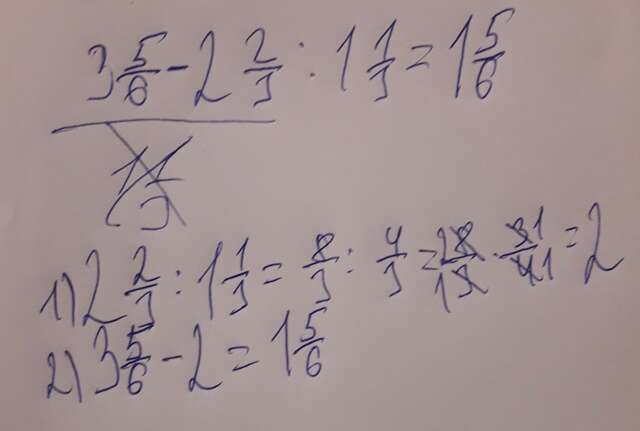 3 5/6 - 2 2/3 : 1 1/3 = 1 5/6
1) 2 2/3 : 1 1/3 = 8/3 : 4/3 = 28/13 · 31/41 = 2
2) 3 5/6 - 2 = 1 5/6